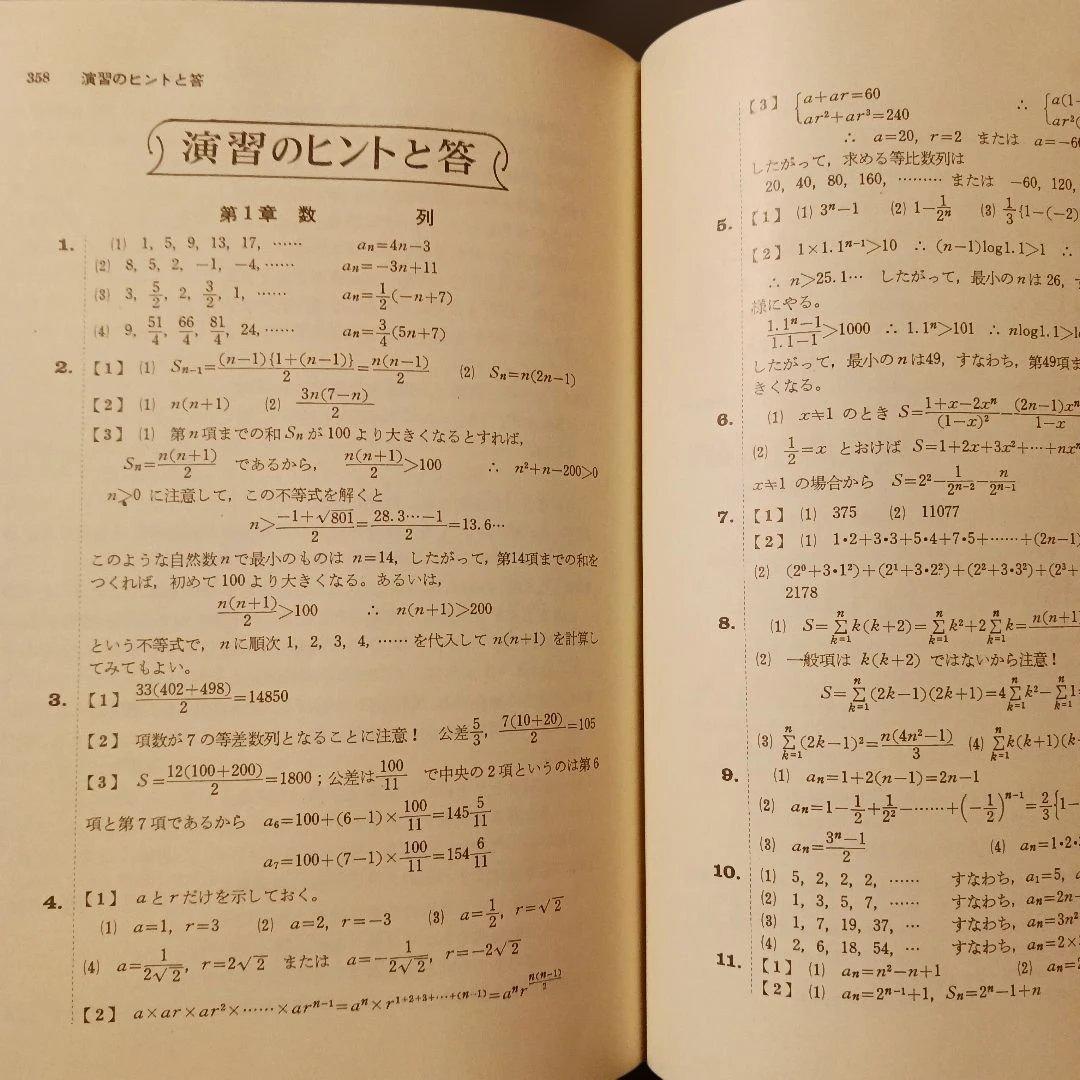 358 演習のヒントと答
演習のヒントと答
第1章 数 列
1. (1) 1, 5, 9, 13, 17, …… aₙ=4n−3
(2) 8, 5, 2, −1, −4, …… aₙ=−3n+11
(3) 3, 5/2, 2, 3/2, 1, …… aₙ=1/2(−n+7)
(4) 9, 51/4, 66/4, 81/4, 24, …… aₙ=3/4(5n+7)
2. 【1】 (1) Sₙ₋₁=(n−1){1+(n−1)}/2=n(n−1)/2 (2) Sₙ=n(2n−1)
【2】 (1) n(n+1) (2) 3n(7−n)/2
【3】 (1) 第n項までの和Sₙが100より大きくなるとすれば,
Sₙ=n(n+1)/2 であるから, n(n+1)/2>100 ∴ n²+n−200>0
n>0 に注意して, この不等式を解くと
n>(−1+√801)/2=(28.3…−1)/2=13.6…
このような自然数nで最小のものは n=14, したがって, 第14項までの和を
つくれば, 初めて100より大きくなる。あるいは,
n(n+1)/2>100 ∴ n(n+1)>200
という不等式で, nに順次1, 2, 3, 4, …… を代入して n(n+1) を計算し
てみてもよい。
3. 【1】 33(402+498)/2=14850
【2】 項数が7の等差数列となることに注意! 公差5/3, 7(10+20)/2=105
【3】 S=12(100+200)/2=1800 ; 公差は100/11 で中央の2項というのは第6
項と第7項であるから a₆=100+(6−1)×100/11=145 5/11
a₇=100+(7−1)×100/11=154 6/11
4. 【1】 aとrだけを示しておく。
(1) a=1, r=3 (2) a=2, r=−3 (3) a=1/2, r=√2
(4) a=1/(2√2), r=2√2 または a=−1/(2√2), r=−2√2
【2】 a×ar×ar²×……×arⁿ⁻¹=aⁿ×r^(1+2+3+…+(n−1))=aⁿr^(n(n−1)/2)
【3】 {a+ar=60 ∴ {a(1
ar²+ar³=240 ar²(
∴ a=20, r=2 または a=−6
したがって, 求める等比数列は
20, 40, 80, 160, ……… または −60, 120,
5. 【1】 (1) 3ⁿ−1 (2) 1−1/2ⁿ (3) 1/3{1−(−2)
【2】 1×1.1ⁿ⁻¹>10 ∴ (n−1)log1.1>1 ∴
∴ n>25.1… したがって, 最小のnは26,
様にやる。
(1.1ⁿ−1)/(1.1−1)>1000 ∴ 1.1ⁿ>101 ∴ nlog1.1>l
したがって, 最小のnは49, すなわち, 第49項ま
きくなる。
6. (1) x≠1 のとき S=(1+x−2xⁿ)/(1−x)²−(2n−1)xⁿ/(1−x)
(2) 1/2=x とおけば S=1+2x+3x²+…+nx
x≠1 の場合から S=2²−1/2ⁿ⁻²−n/2ⁿ⁻¹
7. 【1】 (1) 375 (2) 11077
【2】 (1) 1・2+3・3+5・4+7・5+……+(2n−1)
(2) (2⁰+3・1²)+(2¹+3・2²)+(2²+3・3²)+(2³+
2178
8. (1) S=Σ[k=1,n] k(k+2)=Σ[k=1,n] k²+2Σ[k=1,n] k=n(n+1)
(2) 一般項は k(k+2) ではないから注意!
S=Σ[k=1,n] (2k−1)(2k+1)=4Σ[k=1,n] k²−Σ[k=1,n] 1=
(3) Σ[k=1,n] (2k−1)²=n(4n²−1)/3 (4) Σ[k=1,n] k(k+1)(k
9. (1) aₙ=1+2(n−1)=2n−1
(2) aₙ=1−1/2+1/2²−……+(−1/2)ⁿ⁻¹=2/3{1−
(3) aₙ=(3ⁿ−1)/2 (4) aₙ=1・2・
10. (1) 5, 2, 2, 2, …… すなわち, a₁=5,
(2) 1, 3, 5, 7, …… すなわち, aₙ=2n−
(3) 1, 7, 19, 37, … すなわち, aₙ=3n²
(4) 2, 6, 18, 54, … すなわち, aₙ=2×
11. 【1】 (1) aₙ=n²−n+1 (2) aₙ=
【2】 (1) aₙ=2ⁿ⁻¹+1, Sₙ=2ⁿ−1+n